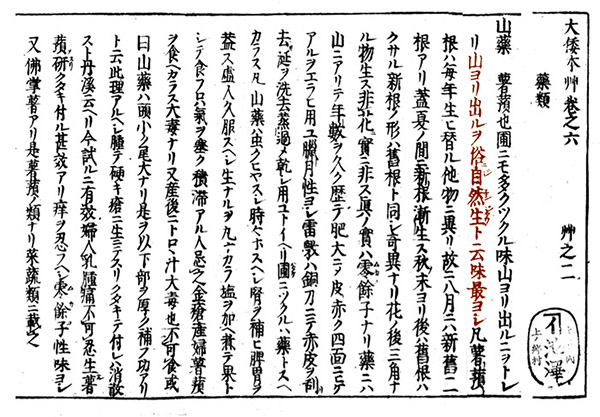 大倭本艸卷之六　艸之二
藥類
山藥　薯蕷也圃ニモ多クツクル味山ヨリ出ルニヲトレ
リ山ヨリ出ルヲ俗自然生ト云味最ヨシ凡薯蕷ノ
根ハ毎年生ヒ替ル他物ニ異リ故ニ八月ニハ新舊二
根アリ蓋夏ノ間ニ新根漸生ス秋末ヨリ後ハ舊根ハ
クサル新根ノ形ハ舊根ト同シ奇異ナリ花ノ後三角ナ
ル物生ス非花實ニ非ス眞ノ實ハ零餘子ナリ藥ニハ
山ニアリテ年數ヲ久ク歷テ肥大ニ乄皮赤ク四面ニヒゲ
アルヲエラヒ用ユ臘月性ヨシ雷斅ハ銅刀ニテ赤皮ヲ刮
去涎ヲ洗去蒸過乄乾シ用ユトイヘリ圃ニツクルハ藥トスヘ
カラス凡山藥ハ虫クヒヤスシ時々ホスヘシ腎ヲ補ヒ脾胃ヲ
益ス虛人久服スヘシ生ナルヲ丸ニカラ塩ヲ加ヘ煮テ果ト
シテ食フハ只氣ヲ塞ク積滯アル人忌之金瘡產婦薯蕷
ヲ食ヘカラス大毒ナリ又產後ニトロヽ汁大毒也不可食或
曰山藥ハ頭小ク尾大ナリ是ヲ以下部ヲ厚ク補フ功アリ
ト云此理アルヘシ腫テ硬キ瘡ニ生ニテスリクタキテ付レハ消散
スト丹溪云ヘリ今試ルニ有效婦人乳腫痛不可忍生薯
蕷研クタキ付ル甚效アリ痒ヲ忍フヘシ零餘子性味ヨシ
又佛掌薯アリ是薯蕷ノ類ナリ菜蔬類ニ載之